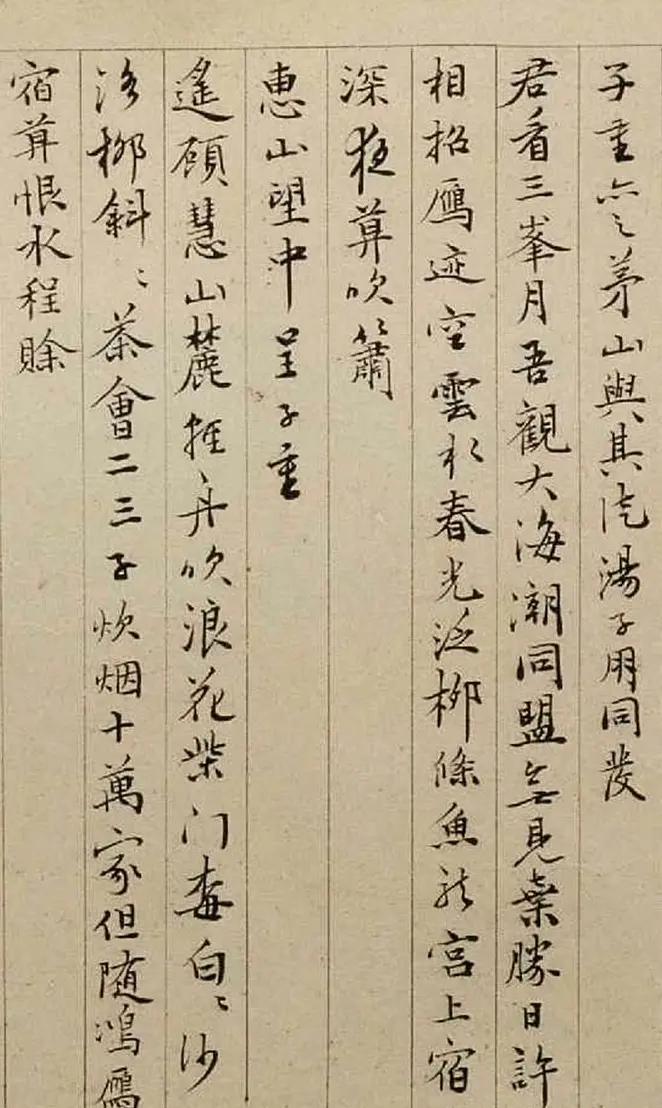 子重之茅山與其徒湯子用同發
君看三峯月吾觀大海潮同盟無見棄勝日許
相招鴈迹空雲水春光泛柳條魚龍宮上宿
深夜莫吹簫
惠山望中呈子重
遙顧慧山麓推舟吹浪花柴門春白〻沙
柳斜〻茶會二三子炊烟十萬家但随鴻鴈
宿莫恨水程賒